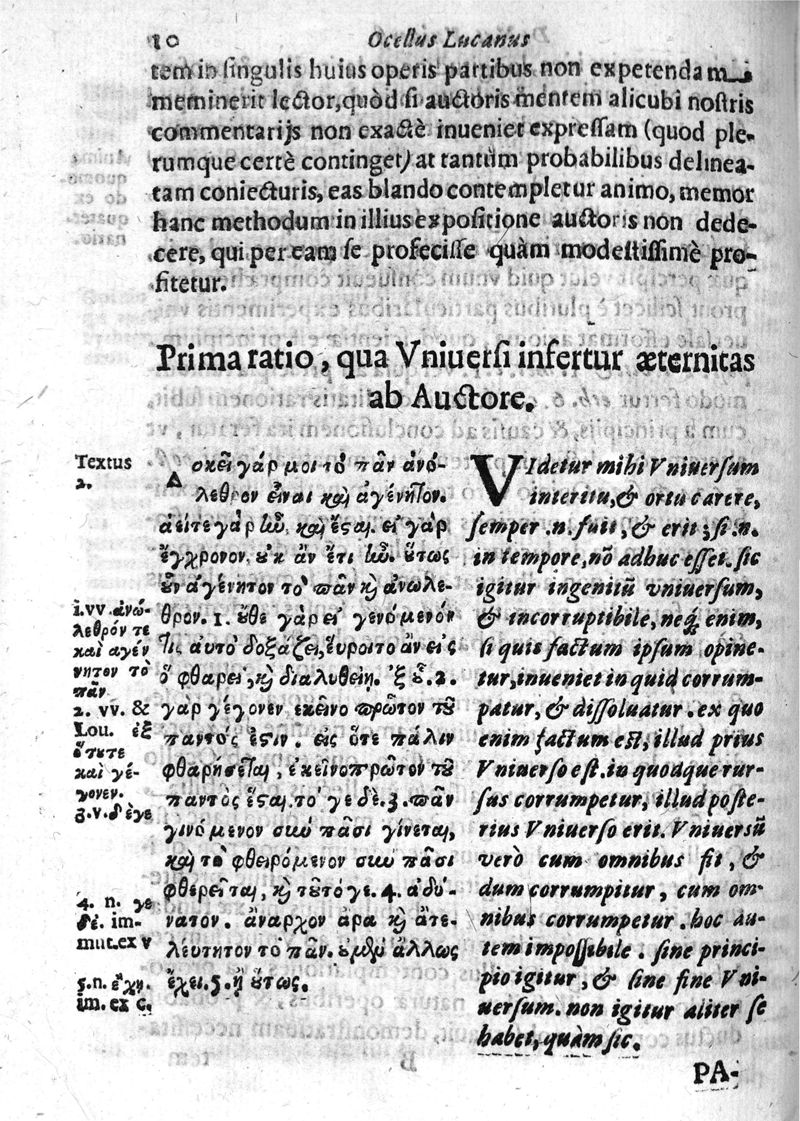 10
Ocellus Lucanus
tem in singulis huius operis partibus non expetendam
meminerit lector, quòd si auctoris mentem alicubi nostris
commentarijs non exactè inueniet expressam (quod ple-
rumque certè continget) at tantùm probabilibus delinea-
tam coniecturis, eas blando contempletur animo, memor
hanc methodum in illius expositione auctoris non dede-
cere, qui per eam se profecisse quàm modestissimè pro-
fitetur.
Prima ratio, qua Vniuersi infertur æternitas
ab Auctore.
Textus
2.
Δοκεῖ γάρ μοι τὸ πᾶν ἀνό-
λεθρον εἶναι καὶ ἀγένητον.
ἀεί τε γὰρ ἦν, καὶ ἔςαι. εἰ γὰρ
ἔγχρονον, οὐκ ἂν ἔτι ἦν. οὕτως
οὖν ἀγένητον τὸ πᾶν καὶ ἀνωλε-
θρον. 1. οὔθε γὰρ εἰ γενόμενόν
τις αὐτὸ δοξάζει, εὕροιτο ἂν εἰς
ὃ φθαρεῖ, καὶ διαλυθείη. ἐξ οὗ. 2.
γὰρ γέγονεν ἐκεῖνο πρῶτον τοῦ
παντός ἐςιν. εἰς ὅτε πάλιν
φθαρήσεται, ἐκεῖνο πρῶτον τοῦ
παντὸς ἔςαι. τό γε δέ. 3. πᾶν
γινόμενον σὺν πᾶσι γίνεται,
καὶ τὸ φθειρόμενον σὺν πᾶσι
φθερεῖται, καὶ τοῦτό γε. 4. ἀδύ-
νατον. ἄναρχον ἄρα καὶ ἀτε-
λέυτητον τὸ πᾶν. οὐμὲν ἄλλως
ἔχει. 5. ἢ οὕτως.
1. vv. ἀνώ-
λεθρόν τε
καὶ ἀγέν
νητον τὸ
πᾶν
2. vv. &
Lou. ἐξ
ὅτουτε
καὶ γέ-
γονεν.
3. v. δέγε
4. n. γε
δέ. im-
mut. ex v
5. n. ἔχῃ.
im. ex c.
VIdetur mihi Vniuersum
interitu, & ortu carere,
semper .n. fuit, & erit; si .n.
in tempore, nõ adhuc esset. sic
igitur ingenitũ vniuersum,
& incorruptibile, neq; enim,
si quis factum ipsum opine-
tur, inueniet in quid corrum-
patur, & dissoluatur. ex quo
enim factum est, illud prius
Vniuerso est. in quodque rur-
sus corrumpetur, illud poste-
rius Vniuerso erit. Vniuersũ
verò cum omnibus fit, &
dum corrumpitur, cum om-
nibus corrumpetur. hoc au-
tem impossibile. sine princi-
pio igitur, & sine fine Vni-
uersum. non igitur aliter se
habet, quàm sic.
PA-